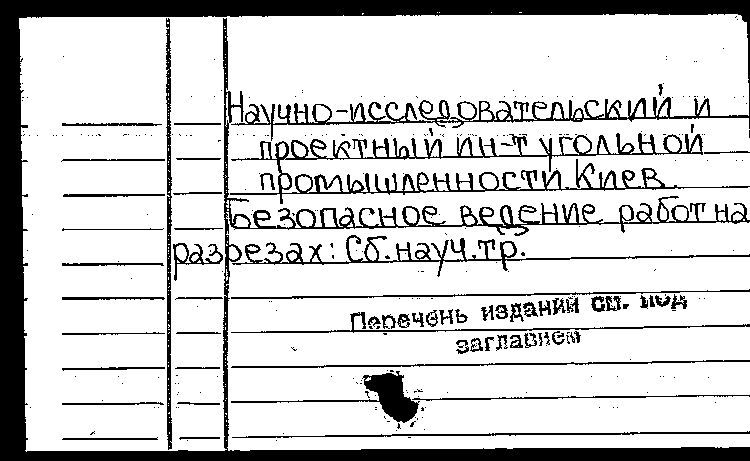 Научно-исследовательский и
проектный ин-т угольной
промышленности Киев.
Безопасное ведение работ на
разрезах: Сб. науч. тр.
Перечень изданий см. под
заглавием